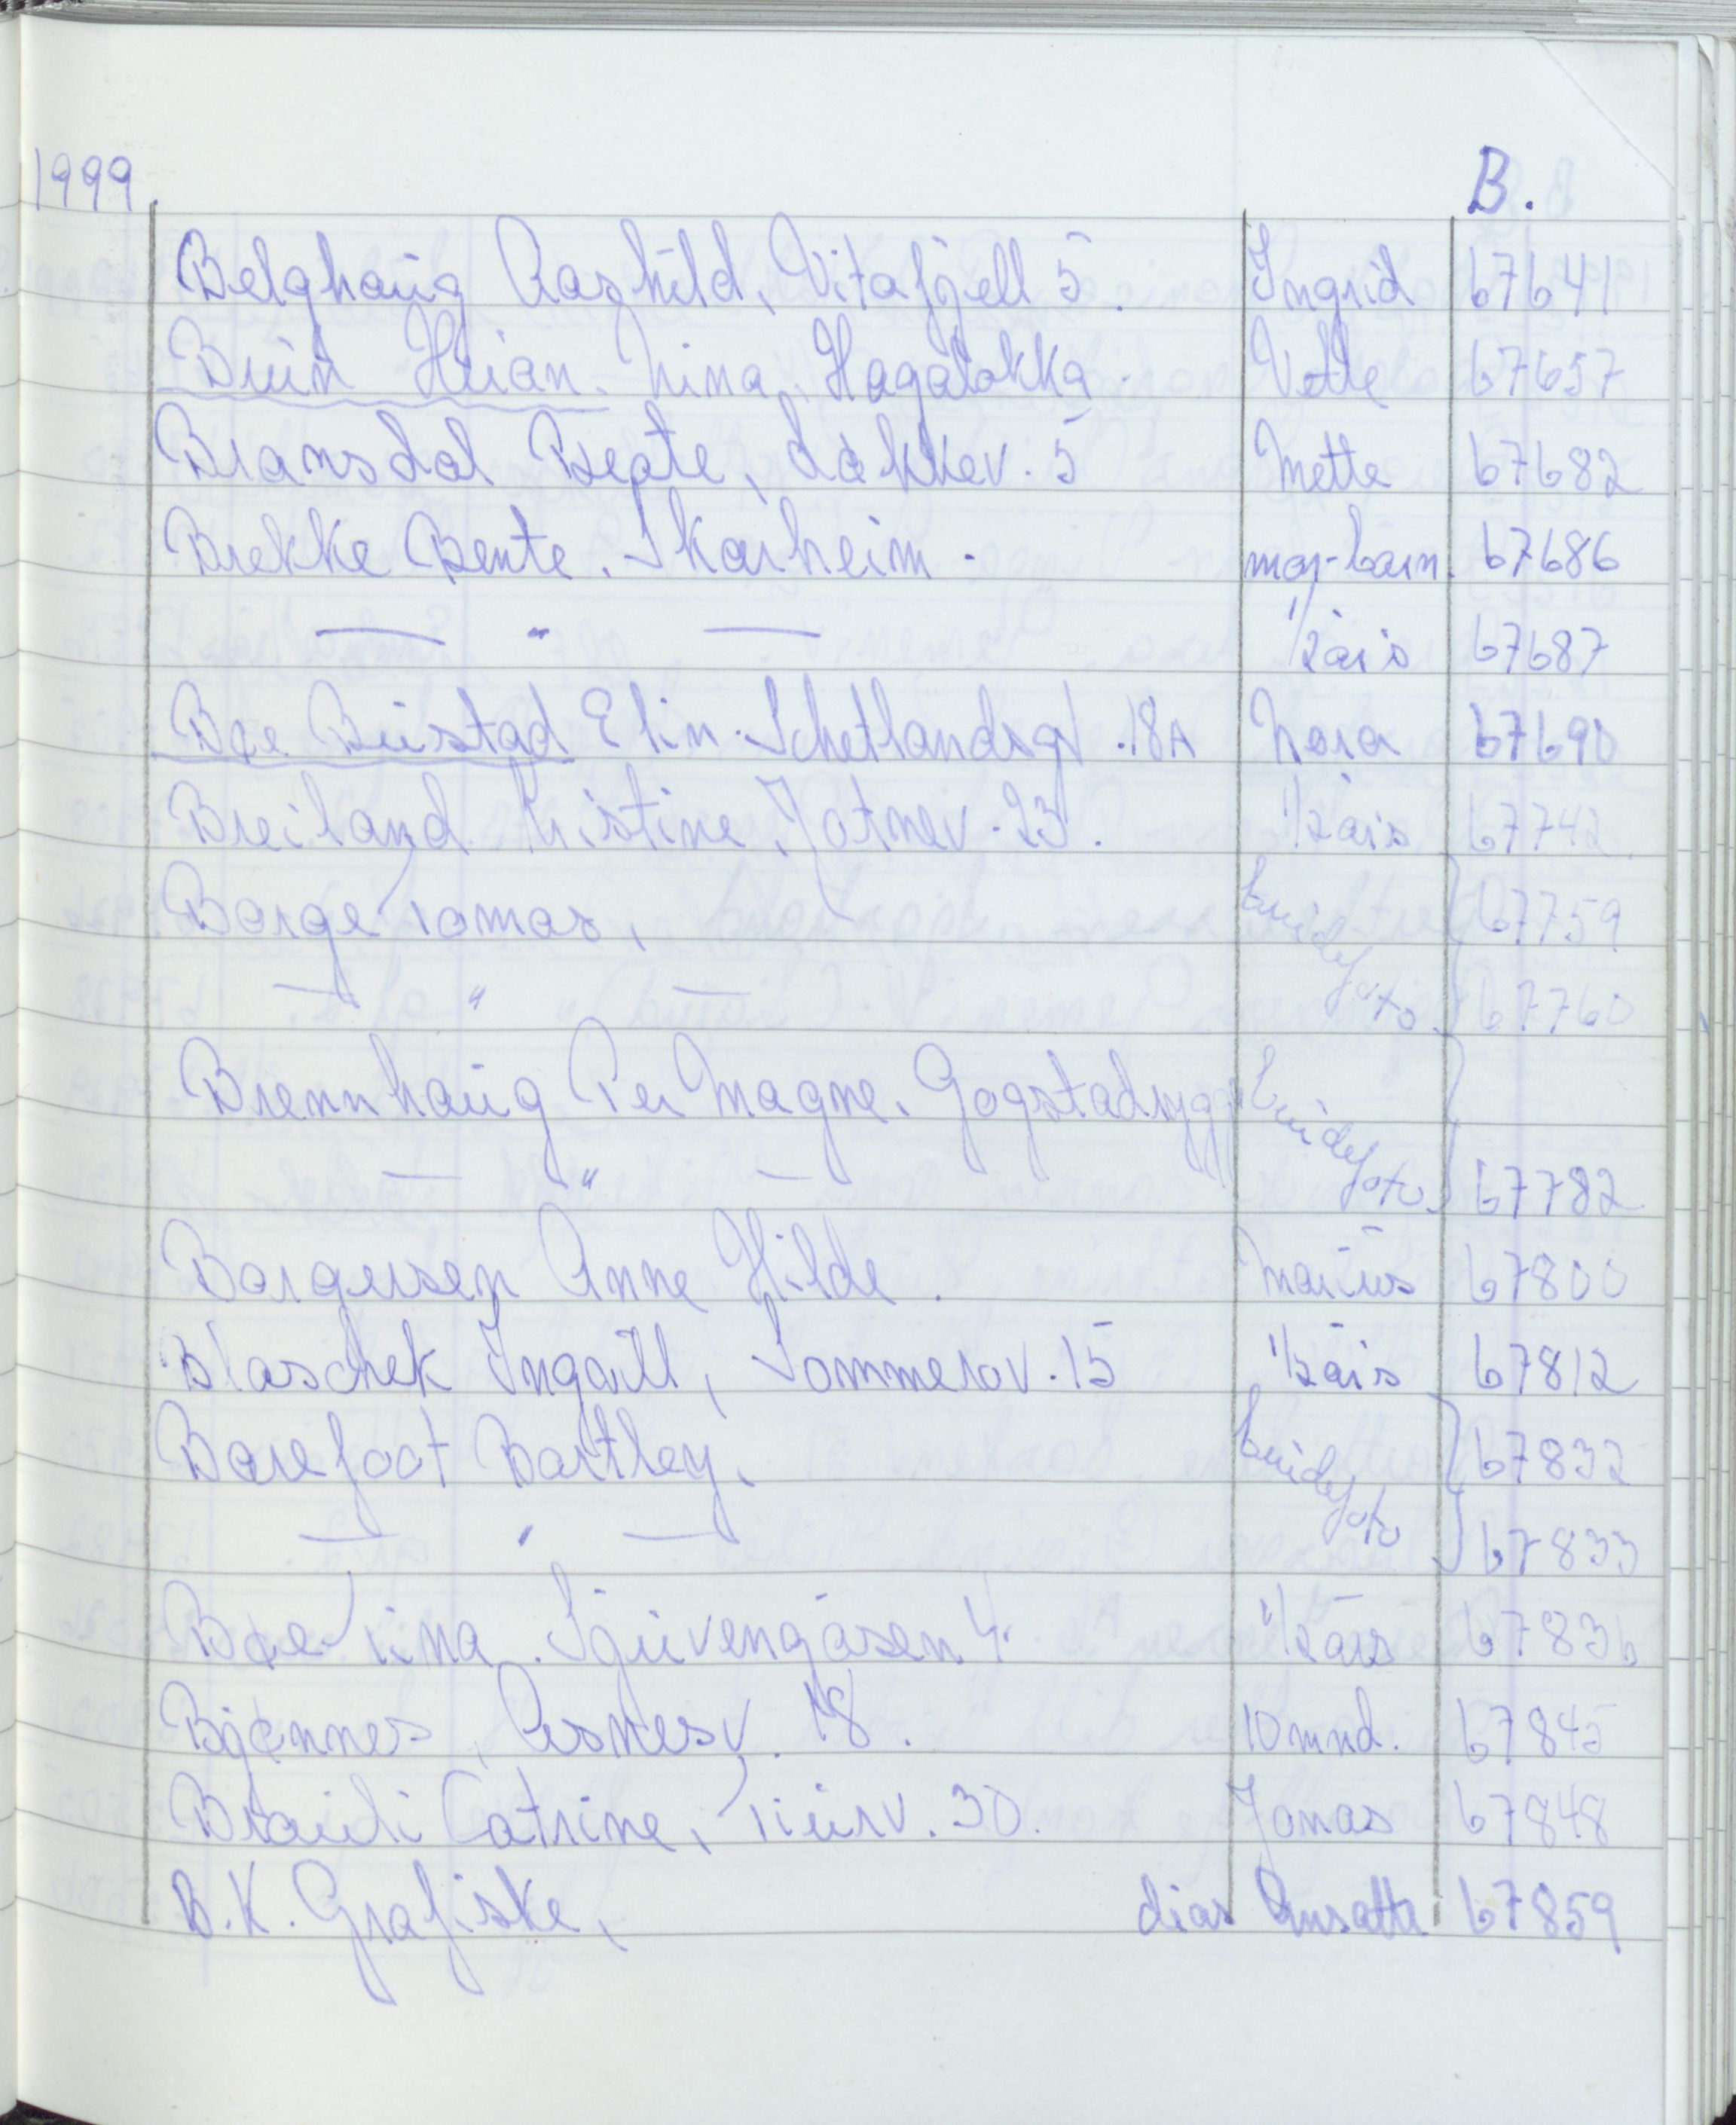 1999. B.
Belghaug Raghild, Vitafjell 5. Ingrid 67641
Bruun Hvian. Nina, Hagaløkka. Vetle 67657
Bransdal Beate, Løkkev. 5 Mette 67682
Brekke Bente. Skarheim. mor-barn. 67686
— " — 1/2 års 67687
Bøe Bustad Elin. Schetlandsgt. 18A Nora 67690
Breiland Kristine, Jotnev. 23. 1/2 års 67742
Borge Tomas, brudefoto } 67759
— " — 67760
Brennhaug Per Magne. Gogstadrygg brudefoto }
— " — 67782
Borgersen Anne Hilde. Marius 67800
Blaschek Ingvill, Sommerov. 15 1/2 års 67812
Barefoot Bartley, brudefoto } 67832
— " — 67833
Bøe Tina. Sjuvengåsen 4. 1/2 års 67836
Bjønnes, Åsnesv. 18. 10 mnd. 67845
Brauti Catrine, Tiurv. 30. Jonas 67848
B.K. Grafiske, dias Ansatte 67859